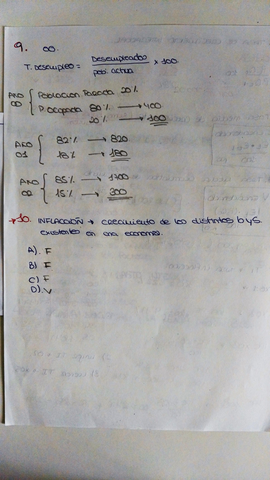 9. 00.
T. Desempleo = Desempleados / pob. activa × 100
AÑO 00 { Poblacion Parada 20%
P. Ocupada 80% → 400
20% → 100
AÑO 01 { 82% → 820
18% → 180
AÑO 02 { 85% → 1700
15% → 300
10. INFLACCIÓN → crecimiento de los distintos bys
existentes en una economía.
A). F
B) F
C) F
D). V